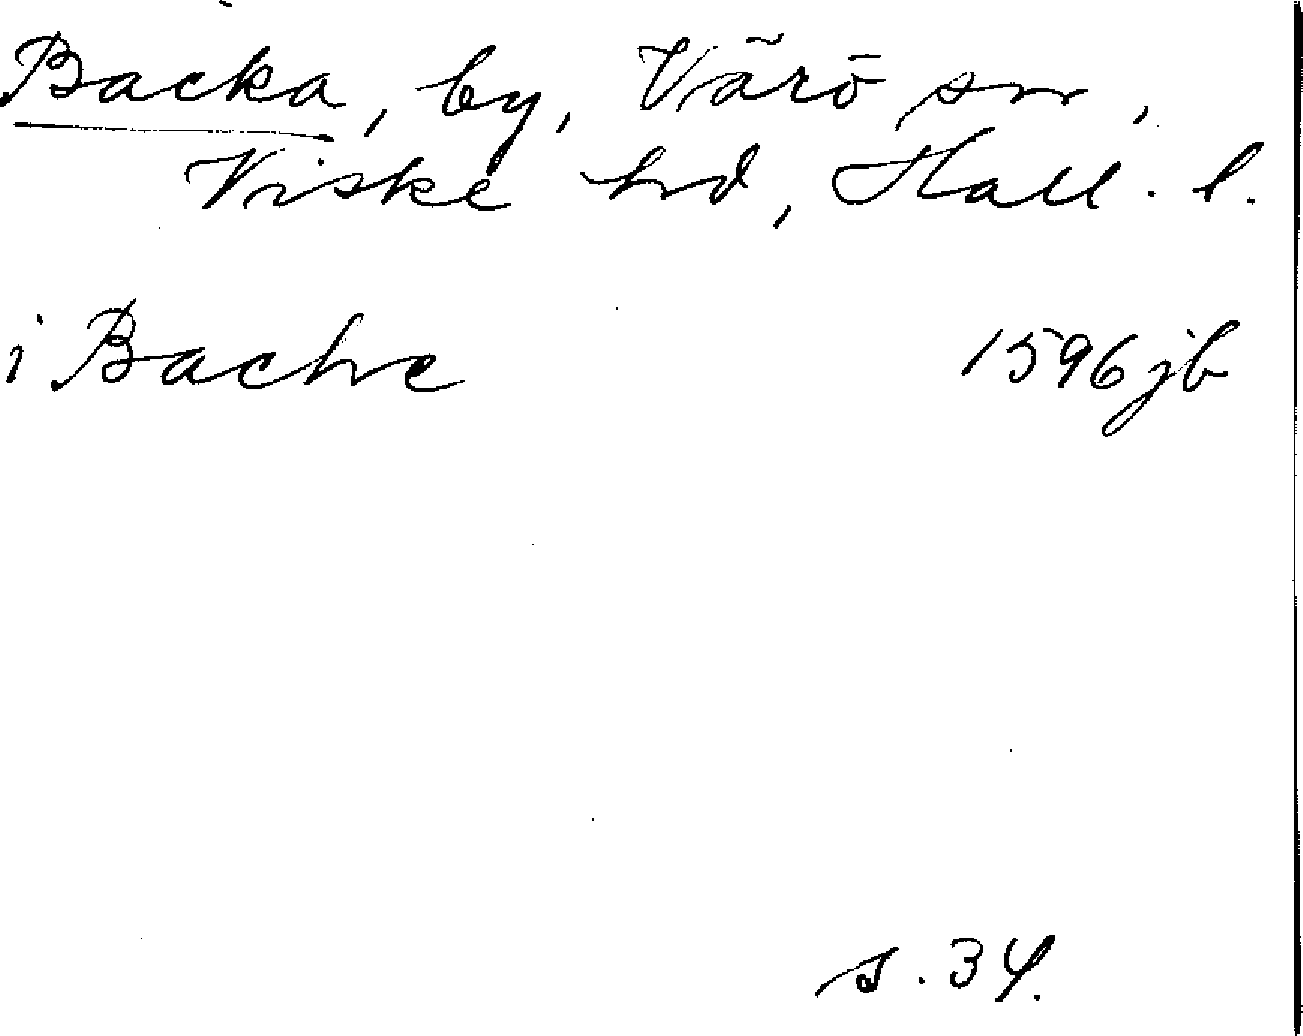 Backa, by, Värö sn,
Viske hd, Hall. l.
i Backe 1596 jb
s. 34.